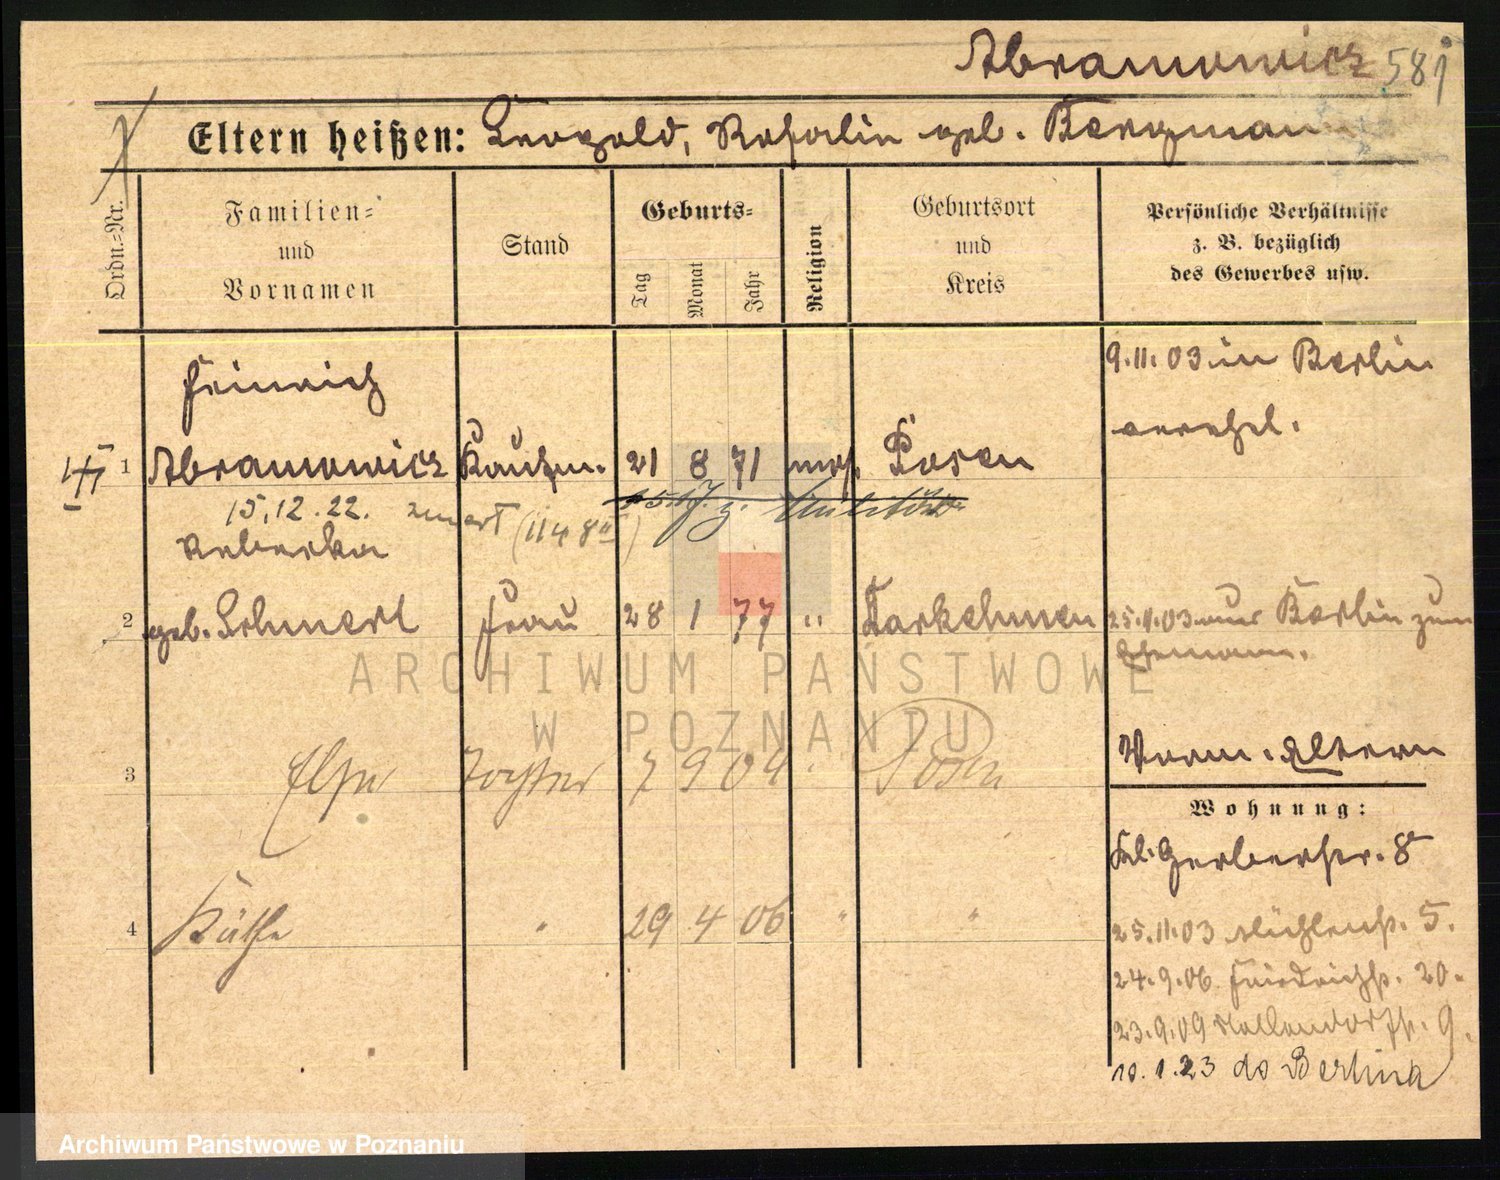 Abramowicz 581
Eltern heißen: Leopold, Rosalie geb. Bergmann
Ordn=Nr.
Familien=
und
Vornamen
Stand
Geburts=
Tag
Monat
Jahr
Religion
Geburtsort
und
Kreis
Persönliche Verhältnisse
z. B. bezüglich
des Gewerbes usw.
9.11.03 in Berlin
verehel.
Heinrich
1 Abramowicz Kaufm. 21 8 71 mos. Posen
15.12.22. zmarł (1148
z. Militär
Rebecka
2 geb. Lehnert Frau 28 1 77 " Darkehmen
25.11.03 aus Berlin zum
Ehemann.
3 Else Tochter 7 9 04 Posen
Vorm. Eltern
Wohnung:
Kl. Gerberstr. 8
4 Käthe " 29 4 06 " "
25.11.03 Mühlenstr. 5.
24.9.06 Friedrichstr. 20.
23.9.09 Nollendorfstr. 9.
10.1.23 do Berlina
ARCHIWUM PAŃSTWOWE
W POZNANIU
Archiwum Państwowe w Poznaniu